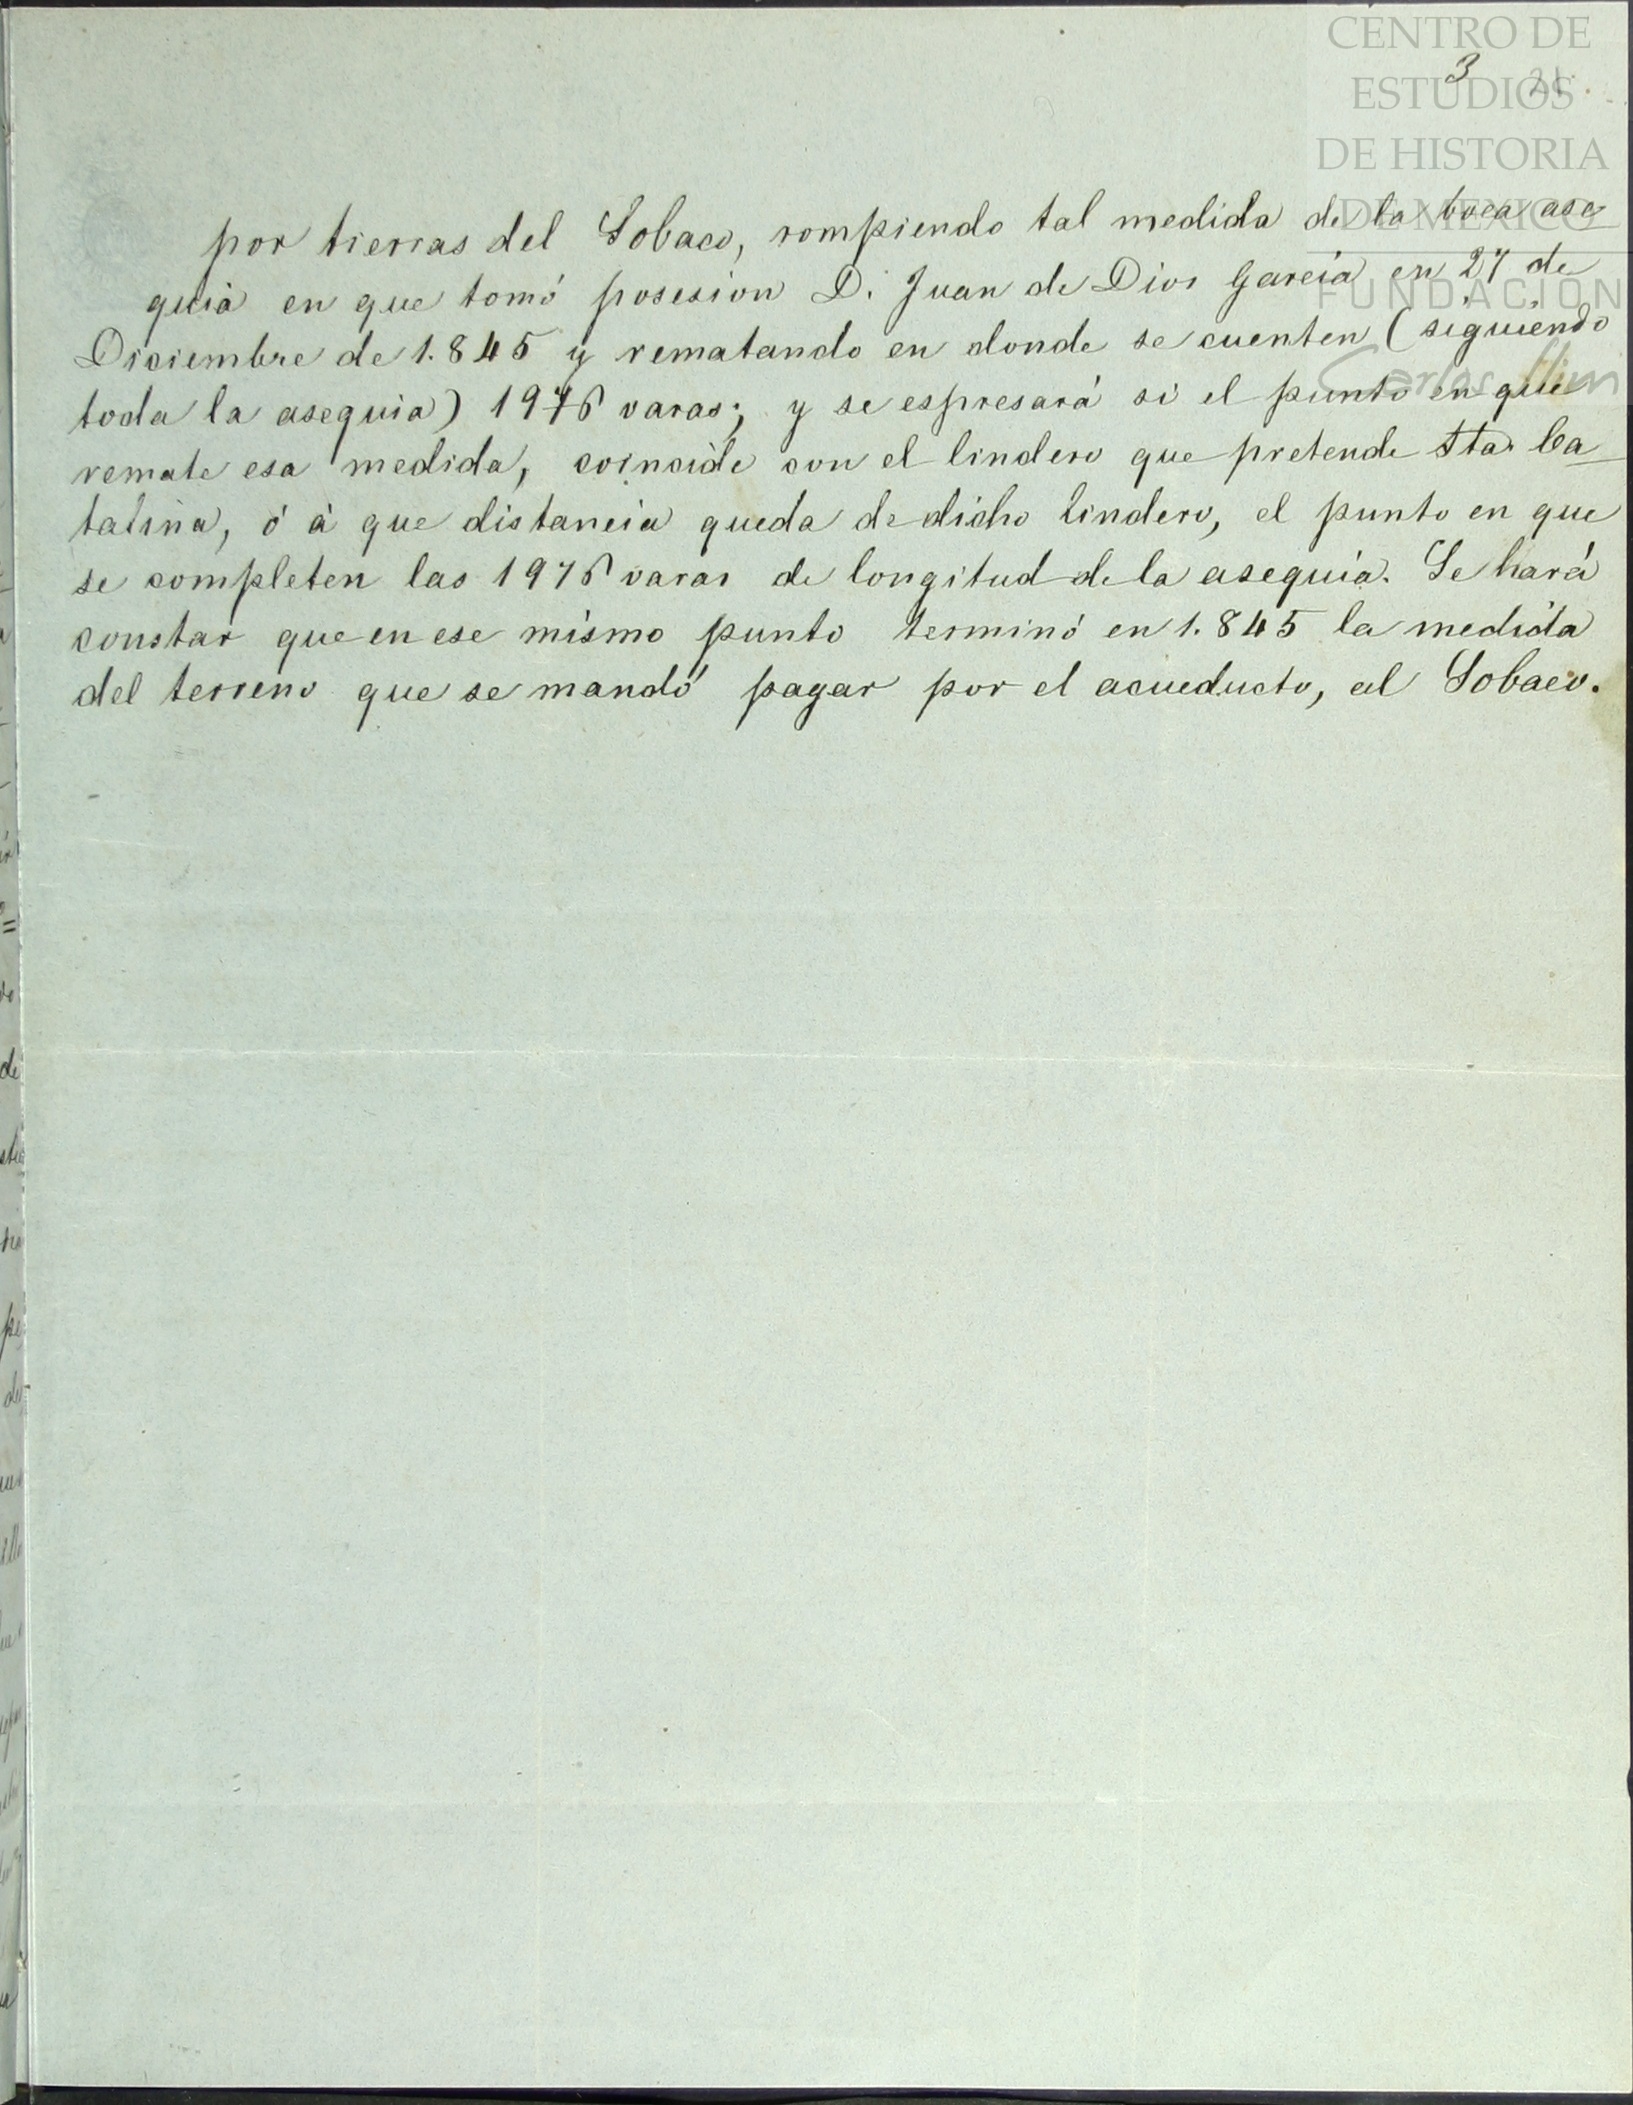 CENTRO DE
ESTUDIOS
DE HISTORIA
DE MEXICO
FUNDACIÓN
Carlos Slim
3 21.
por tierras del Sobaco, rompiendo tal medida de la boca ase-
quia en que tomó posesion D. Juan de Dios Garcia en 27 de
Diciembre de 1.845 y rematando en donde se cuenten (siguiendo
toda la asequia) 1976 varas; y se espresará si el punto en que
remate esa medida, coincide con el lindero que pretende Sta. Ca-
talina, ó á que distancia queda de dicho lindero, el punto en que
se completen las 1976 varas de longitud de la asequia. Se hará
constar que en ese mismo punto terminó en 1.845 la medida
del terreno que se mandó pagar por el acueducto, al Sobaco.